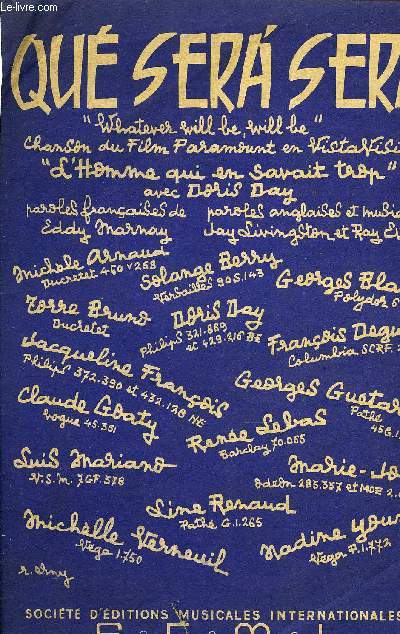 Le-livre.com
QUÉ SERÁ SERÁ
"Whatever will be, will be"
Chanson du Film Paramount en VistaVisi
"L'Homme qui en savait trop"
avec Doris Day
paroles françaises de
Eddy Marnay
paroles anglaises et musi
Jay Livingston et Ray E
Michèle Arnaud
Ducretet 460 V 258
Solange Berry
Versailles 90 S. 143
Georges Bla
Polydor
Torre Bruno
Ducretet
Doris Day
Philips 321.889
et 429.216 BE
François Degu
Columbia SCRF
Jacqueline François
Philips 372.390 et 432.128 NE
Georges Guétar
Pathé
45 G.
Claude Goaty
Vogue 45.381
Renée Lebas
Barclay 70.055
Luis Mariano
V.S.M. 7 GF. 378
Marie-Jo
Odéon 285.357 et MOE 2.
Line Renaud
Pathé G.1.265
Michelle Verneuil
Véga 1.750
Nadine You
Véga P.1.772
SOCIÉTÉ D'ÉDITIONS MUSICALES INTERNATIONALES